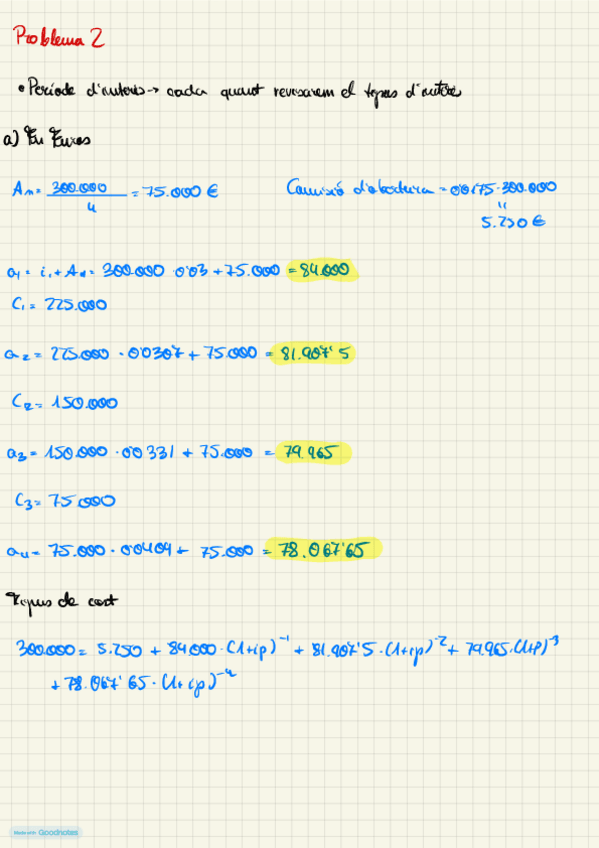 Problema 2
• Període d'interès → cada quant revisarem el tipus d'interès
a) En Euros
An = 300.000 / 4 = 75.000 €
Comissió d'obertura = 0'0175 · 300.000
=
5.250 €
a1 = i1 + A1 = 300.000 · 0'03 + 75.000 = 84.000
C1 = 225.000
a2 = 225.000 · 0'0307 + 75.000 = 81.907'5
C2 = 150.000
a3 = 150.000 · 0'0331 + 75.000 = 79.965
C3 = 75.000
a4 = 75.000 · 0'0409 + 75.000 = 78.067'65
Tipus de cost
300.000 = 5.250 + 84.000 · (1+ip)⁻¹ + 81.907'5 · (1+ip)⁻² + 79.965 · (1+ip)⁻³
+ 78.067'65 · (1+ip)⁻⁴
Made with Goodnotes